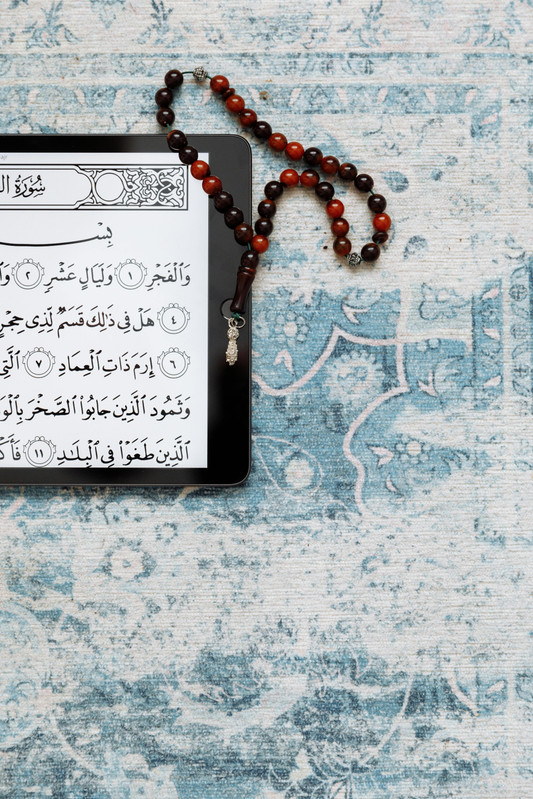 سُورَةُ ال
بِسْ
وَٱلْفَجْرِ ١ وَلَيَالٍ عَشْرٍ ٢ وَٱ
٤ هَلْ فِى ذَٰلِكَ قَسَمٌ لِّذِى حِجْرٍ
٦ إِرَمَ ذَاتِ ٱلْعِمَادِ ٧ ٱلَّتِى
وَثَمُودَ ٱلَّذِينَ جَابُوا۟ ٱلصَّخْرَ بِٱلْوَ
ٱلَّذِينَ طَغَوْا۟ فِى ٱلْبِلَـٰدِ ١١ فَأَكْ